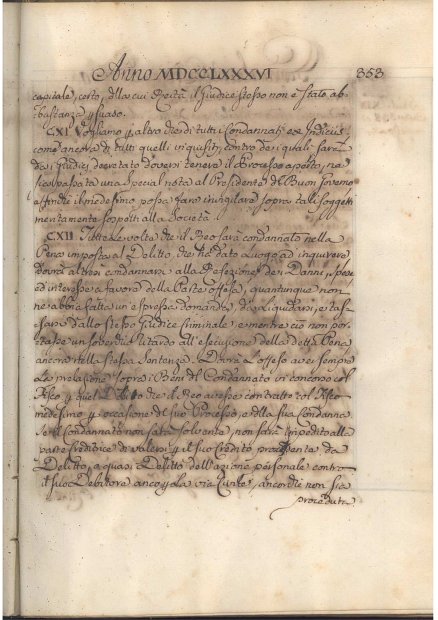 Anno MDCCLXXXVI 353
capitale, certo, della cui Reità il Giudice stesso non è stato ab:
bastanza persuaso.
CXI Vogliamo altro che di tutti i Condannati ex Indiciis
come ancora di tutti quelli inquisiti contro dei quali sarà
dai Giudici decretato doversi tenere il Processo aperto, ne
sia passata una special nota al Presidente del Buon Governo
affinche il medesimo possa fare invigilare sopra tali soggetti
meritamente sospetti alla Società
CXII Tutte le volte che il Reo sarà condannato nella
Pena imposta al Delitto, che ha dato luogo ad inquirere
dovrà altresì condannarsi alla Refezione dei Danni, spese
ed interesse a favore della Parte offesa, quantunque non
ne abbia fatta un espressa domanda, da Liquidarsi, e tas:
sarsi dallo stesso Giudice Criminale, e mentre ciò non por:
tasse un soverchio ritardo all'esecuzione della detta Pena
ancora nella stessa Sentenza. E Dovrà l'offeso aver sempre
La prelazione sopra i Beni del Condannato in concorso col
Fisco, p quel Debito che il Reo avesse contratto col Fisco
medesimo p occasione del suo Processo, e della sua Condanna
Se il Condannato non sarà solvente, non sarà impedito alla
parte creditrice di valersi p il suo Credito procedente da
Delitto, o quasi Delitto dell'azione personale contro
il suo Debitore anco p La via Civile, ancorche non sia
proceduta